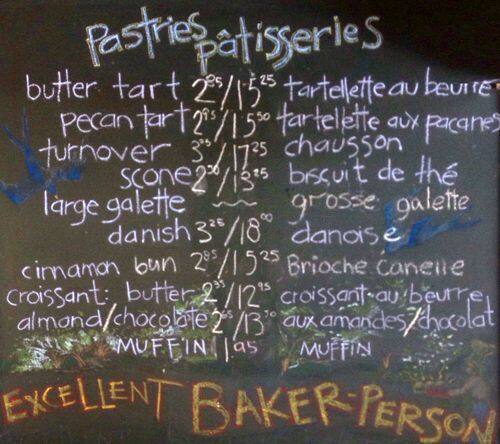 Pastries pâtisseries
butter tart 2.85/15.25 tartellette au beurre
pecan tart 2.95/15.50 tartelette aux pacanes
turnover 3.25/17.25 chausson
scone 2.50/13.25 biscuit de thé
large galette ~~ grosse galette
danish 3.25/18.00 danoise
cinnamon bun 2.85/15.25 Brioche canelle
croissant: butter 2.35/12.95 croissant au beurre
almond/chocolate 2.65/13.70 aux amandes/chocolat
MUFFIN 1.95 MUFFIN
EXCELLENT BAKER-PERSON